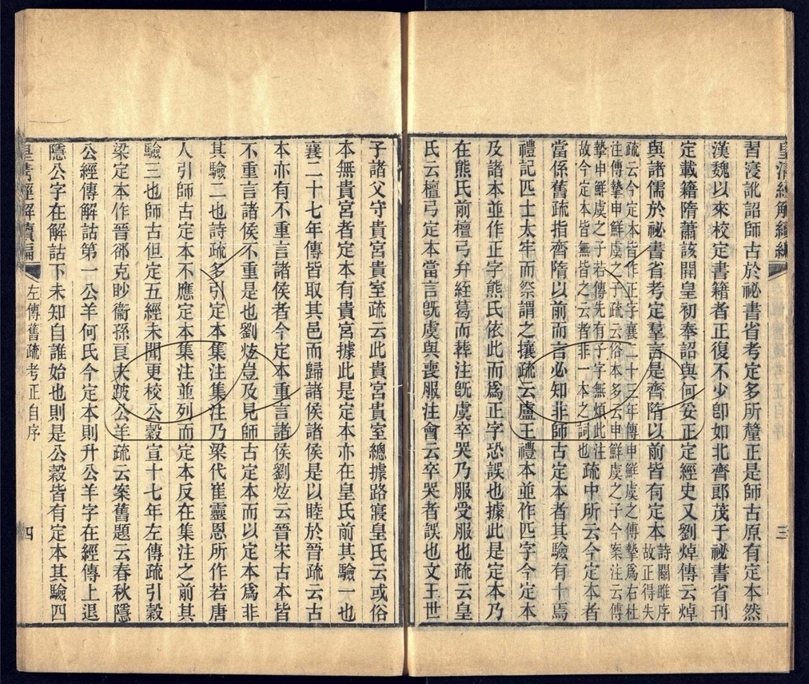 皇清經解續編
習寖訛詔師古於祕書省考定多所釐正是師古原有定本然
漢魏以來校定書籍者正復不少卽如北齊郎茂于祕書省刊
定載籍隋蕭該開皇初奉詔與何妥正定經史又劉焯傳云焯
與諸儒於祕書省考定羣言是齊隋以前皆有定本
詩關雎序
故正得失
疏云今定本皆作正字襄二十三年傳申鮮虞之傳摯爲右杜
注傳摯申鮮虞之子疏云俗本多云申鮮虞之子今案注云傳
摯申鮮虞之子若傳先有子字無煩此注
故今定本皆無皆之云者非一本之詞也
疏中所云今定本者
當係舊疏指齊隋以前而言必知非師古定本者其驗有十焉
禮記匹士太牢而祭謂之攘疏云盧王禮本並作匹字今定本
及諸本並作正字熊氏依此而爲正字恐誤也據此是定本乃
在熊氏前檀弓弁絰葛而葬注旣虞卒哭乃服受服也疏云皇
氏云檀弓定本當言旣虞與喪服注會云卒哭者誤也文王世
三
子諸父守貴宮貴室疏云此貴宮貴室總據路寢皇氏云或俗
本無貴宮者定本有貴宮據此是定本亦在皇氏前其驗一也
襄二十七年傳皆取其邑而歸諸侯諸侯是以睦於晉疏云古
本亦有不重言諸侯者今定本重言諸侯劉炫云晉宋古本皆
不重言諸侯不重是也劉炫豈及見師古定本而以定本爲非
其驗二也詩疏多引定本集注集注乃梁代崔靈恩所作若唐
人引師古定本不應定本集注並列而定本反在集注之前其
驗三也師古但定五經未聞更校公穀宣十七年左傳疏引穀
梁定本作晉郤克眇衞孫良夫跛公羊疏云案舊題云春秋隱
公經傳解詁第一公羊何氏今定本則升公羊字在經傳上退
隱公字在解詁下未知自誰始也則是公穀皆有定本其驗四
皇淸經解續編
左傳舊疏考正自序
四